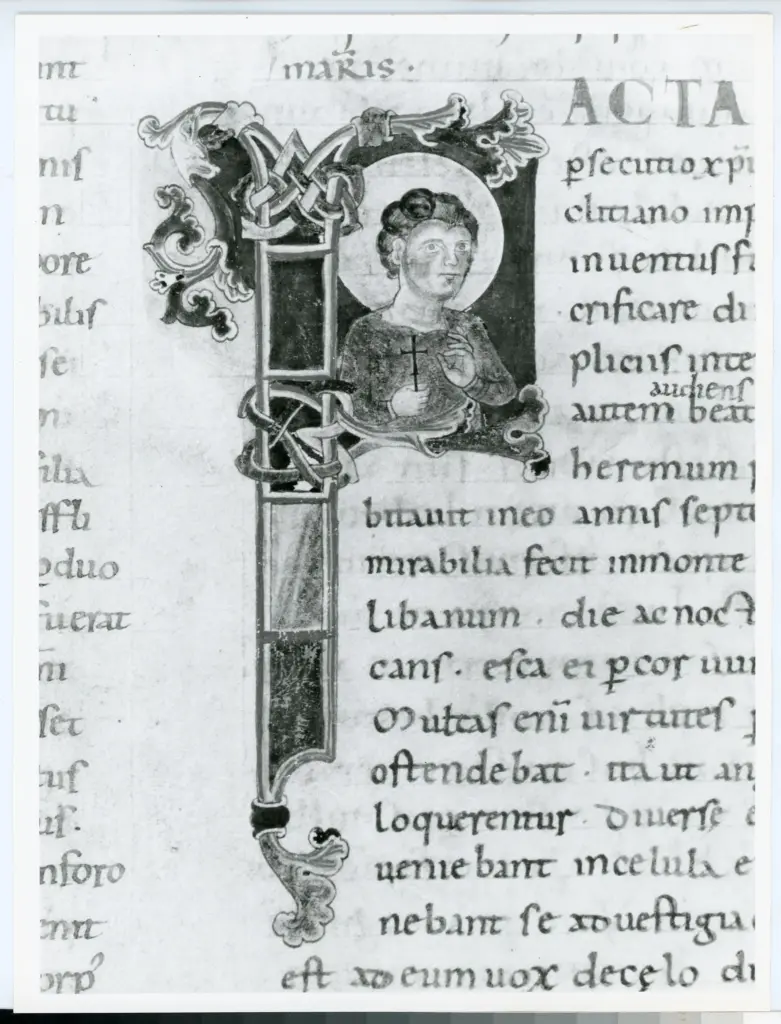 int
tu
nis
n
ore
bilis
se
ni
silia
ssb
duo
fuerat
m̄
set
tus
ul.
nforo
enit
orp̄
maR̄is.
ACTA
psecutio xp̄i
clitiano imp
inuentus fi
crificare di
plicius inte
audiens
autem beat
heremum p
bitauit ineo annis septe
mirabilia fecit inmonte
libanum . die ac noct
cans . esca ei pecor uiui
Multas eni uirtutes p
ostendebat . ita ut an
loquerentur . Diuerse e
ueniebant incelula e
nebant se ad uestigia
est ad eum uox decęlo di